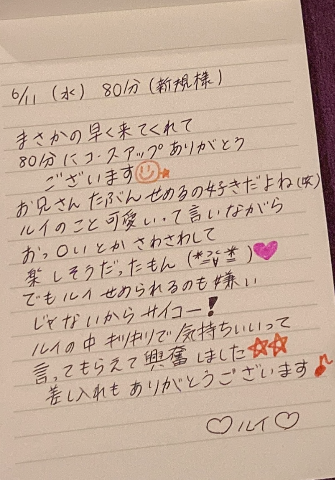 6/11 (水) 80分(新規様)
まさかの早く来てくれて
80分にコースアップありがとう
ございます
お兄さんたぶんせめるの好きだよね(笑)
ルイのこと可愛いって言いながら
おっ〇いとかさわさわして
楽しそうだったもん
でもルイせめられるのも嫌い
じゃないからサイコー!
ルイの中キリキリで気持ちいいって
言ってもらえて興奮しました☆☆
差し入れもありがとうございます♪
♡ルイ♡